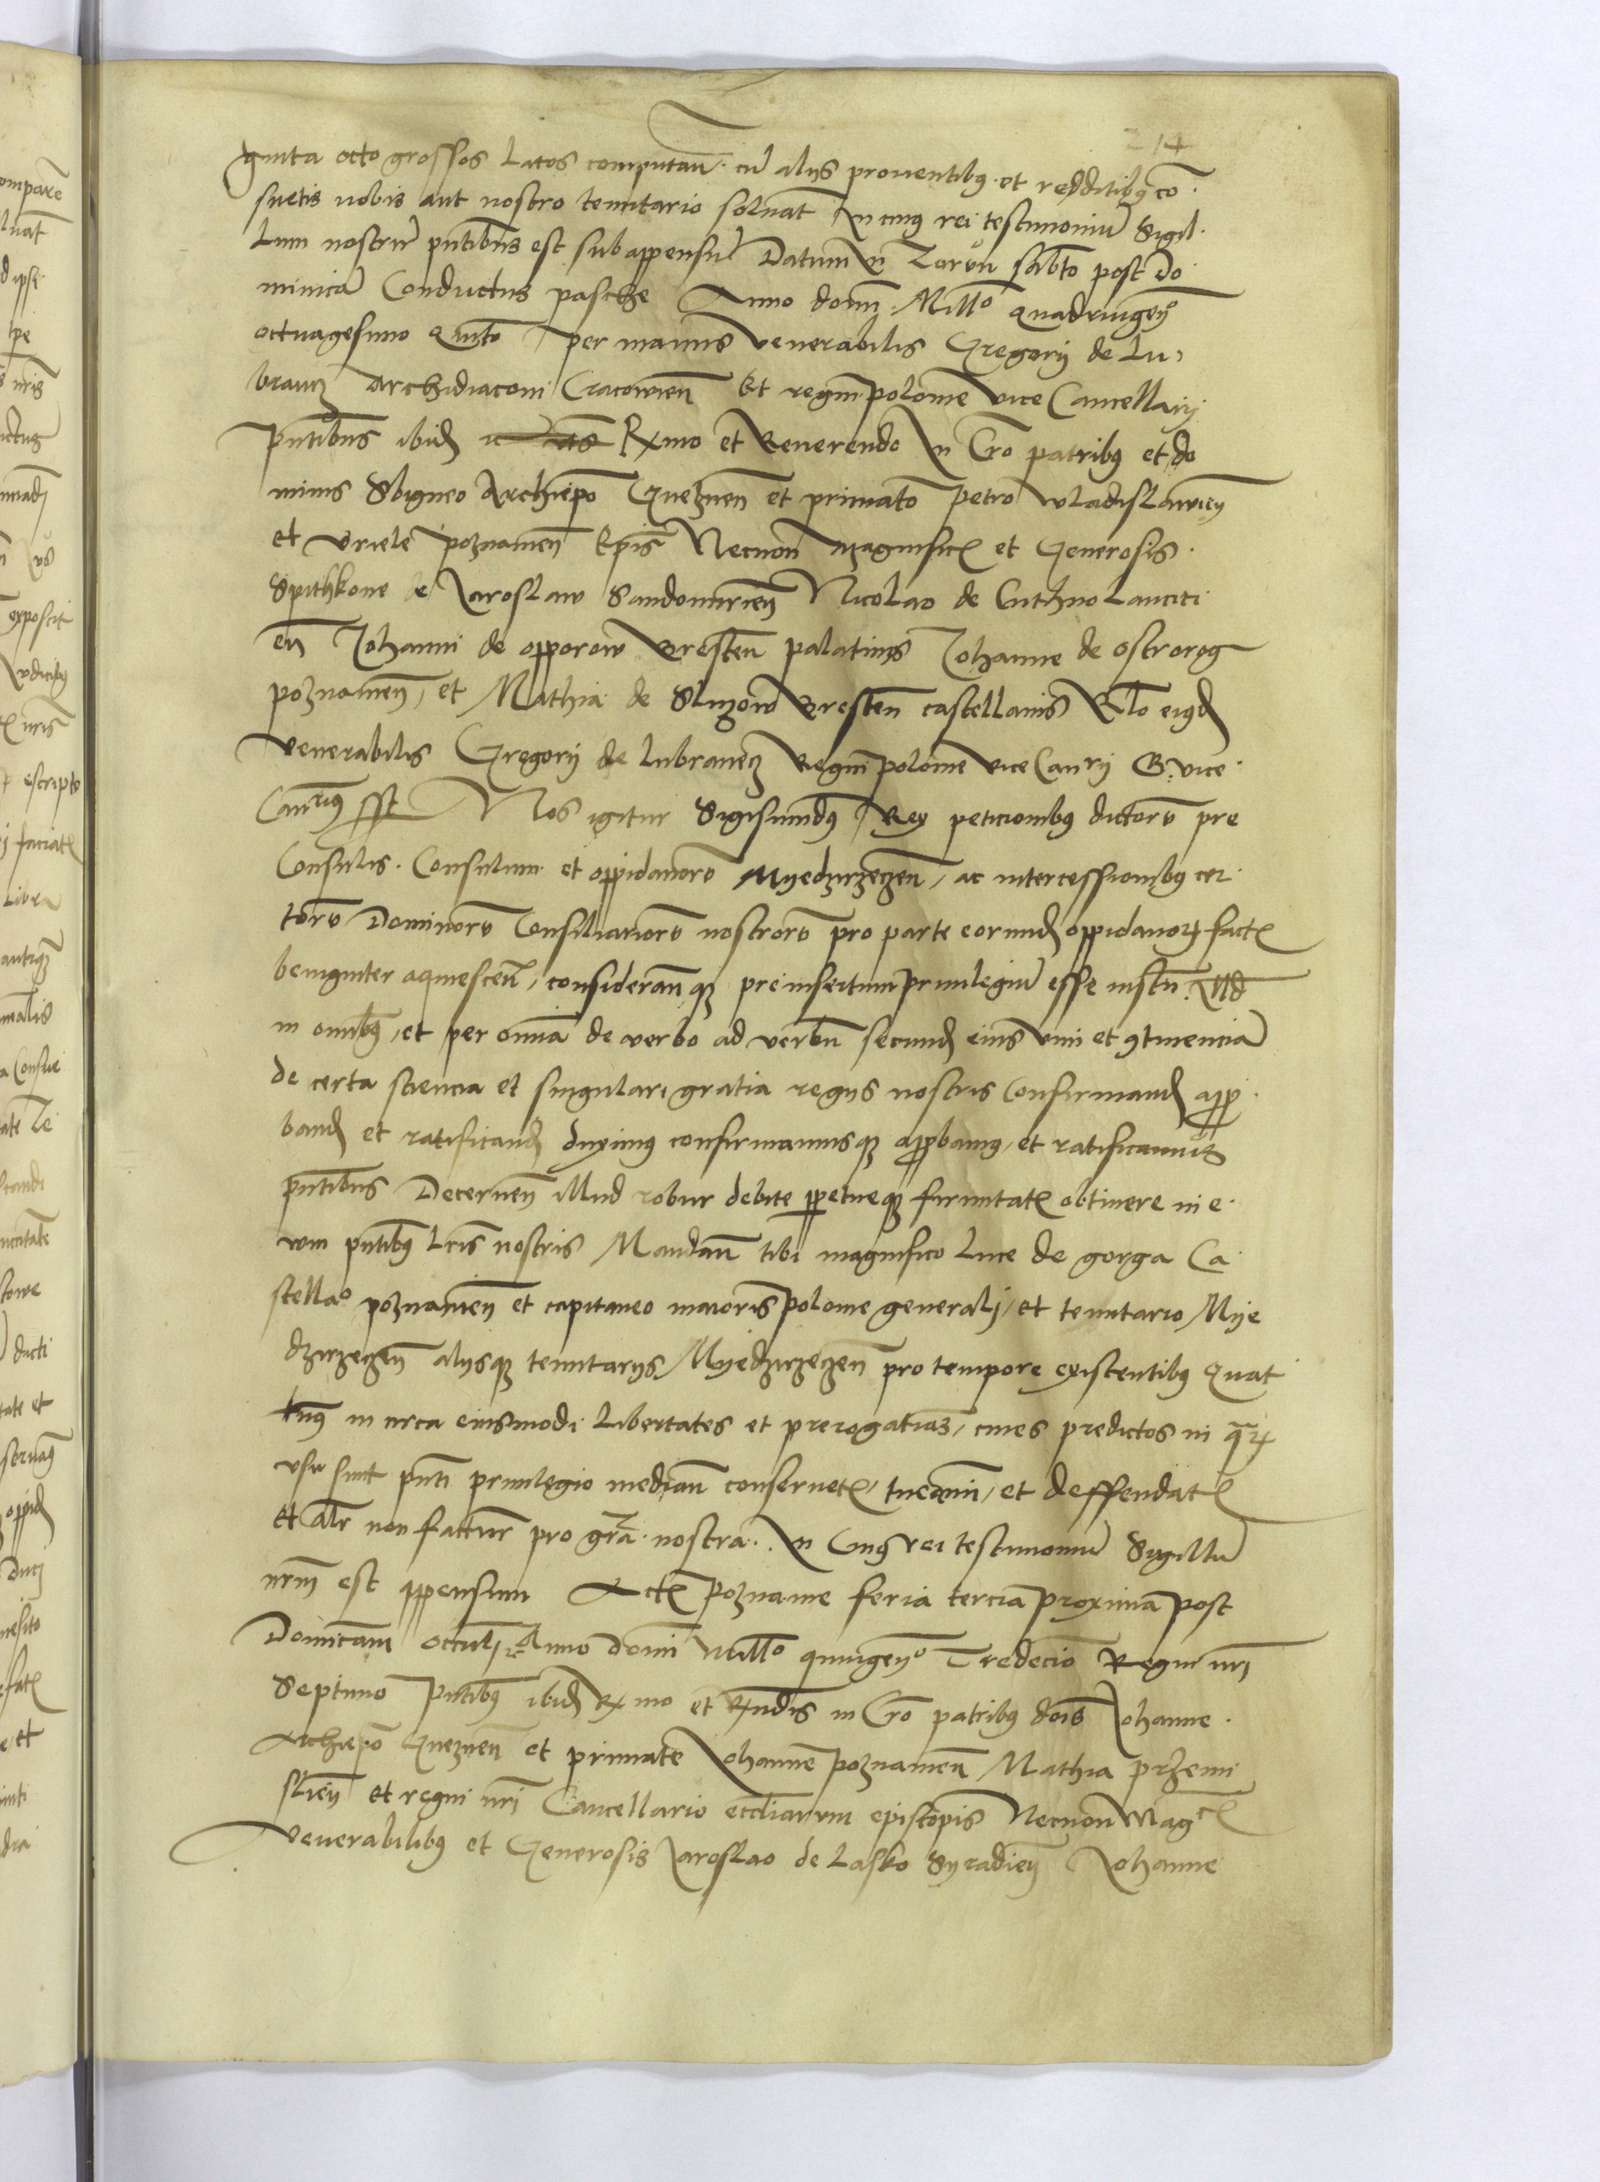 214
ginta octo grossos latos computan̄. cū alijs prouentibꝫ et redditibꝫ co.
suetis nobis aut nostro tenutario soluat In cuiꝫ rei testimoniū Sigil.
lum nostrū pn̄tibus est subappensū Datum in Torun̄ sabto post do
minicā Conductus pasche Anno domī. Millo quadringen̄o
octuagesimo Quinto per manus venerabilis Gregorij de Lu,
brancz Archidiaconi Cracouien̄ Et regni polonie vice Cancellarij
pn̄tibus ibid Rx̄mo et Reuerendo In Cro patribꝫ et do
minis Sbigneo Archiepo Gneznen̄ et primato petro wladislauien̄
et vriele poznanien̄ Epis Necnon magnific et Generosis.
Spithkone de Jaroslaw Sandomirien̄ Nicolao de Cuthno lanciti
en̄ Johanni de opporow Bresten̄ palatinis Johanne de ostrorog
poznanien̄, et Mathia de Sluzow Bresten̄ castellanis Rlo eiꝫd
venerabilis Gregorij de lubrancz Regni polonie vice Canrij G. vice.
Canriꝫ sst Nos igitur Sigismundꝫ Rex peticionibꝫ dictorū pre
Consulis. Consulum et oppidanorū Myedzyrzeczen̄, ac intercessionibꝫ cer
torū Dominorū Consiliariorū nostrorū pro parte eorund oppidanoꝝ fact
benigniter aquiescen̄, consideran̄ꝗ preinsertum priuilegiū esse iustū. Illd
in omnibꝫ, et per omnia de verbo ad verbū secund eius vim et ꝯtinenciā
de certa sciencia et singulari gratia regijs nostris Confirmand appr
band et ratificand duximꝫ confirmamusꝗ approbamꝫ, et ratificamus
pn̄tibus Decernen̄ illud robur debite perpetueꝗ firmitat obtinere in e.
wm pn̄tibꝫ lris nostris Mandan̄ tibi magnifico luce de gorga Ca
stellao poznanien̄ et capitaneo maioris polonie generalj, et tenutario Mye
dzyrzeczen̄ alijsꝗ tenutarijs Myedzyrzeczen̄ pro tempore existentibꝫ Quat
tinꝫ in circa eiusmodi libertates et prerogatiuas, ciues predictos in qr̄ꝝ
vsu sunt pn̄ti priuilegio median̄ conseruet, tueami, et deffendat
et alr non factur pro gr̄a nostra. In Cuiꝫ rei testimoniū Sigillū
nrm̄ est appensum Act Poznanie feria tercia proxima post
Dominicam occulj Anno domī Millo quingen̄o Tredecīo Regni nri
Septimo Pn̄tibꝫ ibid Rx̄mo et Rn̄dis in Cro patribꝫ dnīs Johanne.
Archiepo Gneznen̄ et primate Johanne poznanien̄ Mathia przemi
slien̄ et regni nri Cancellario ecclīarum episcopis Necnon Magc
venerabilibꝫ et Generosis Jaroslao de lasko Syradien̄ Johanne